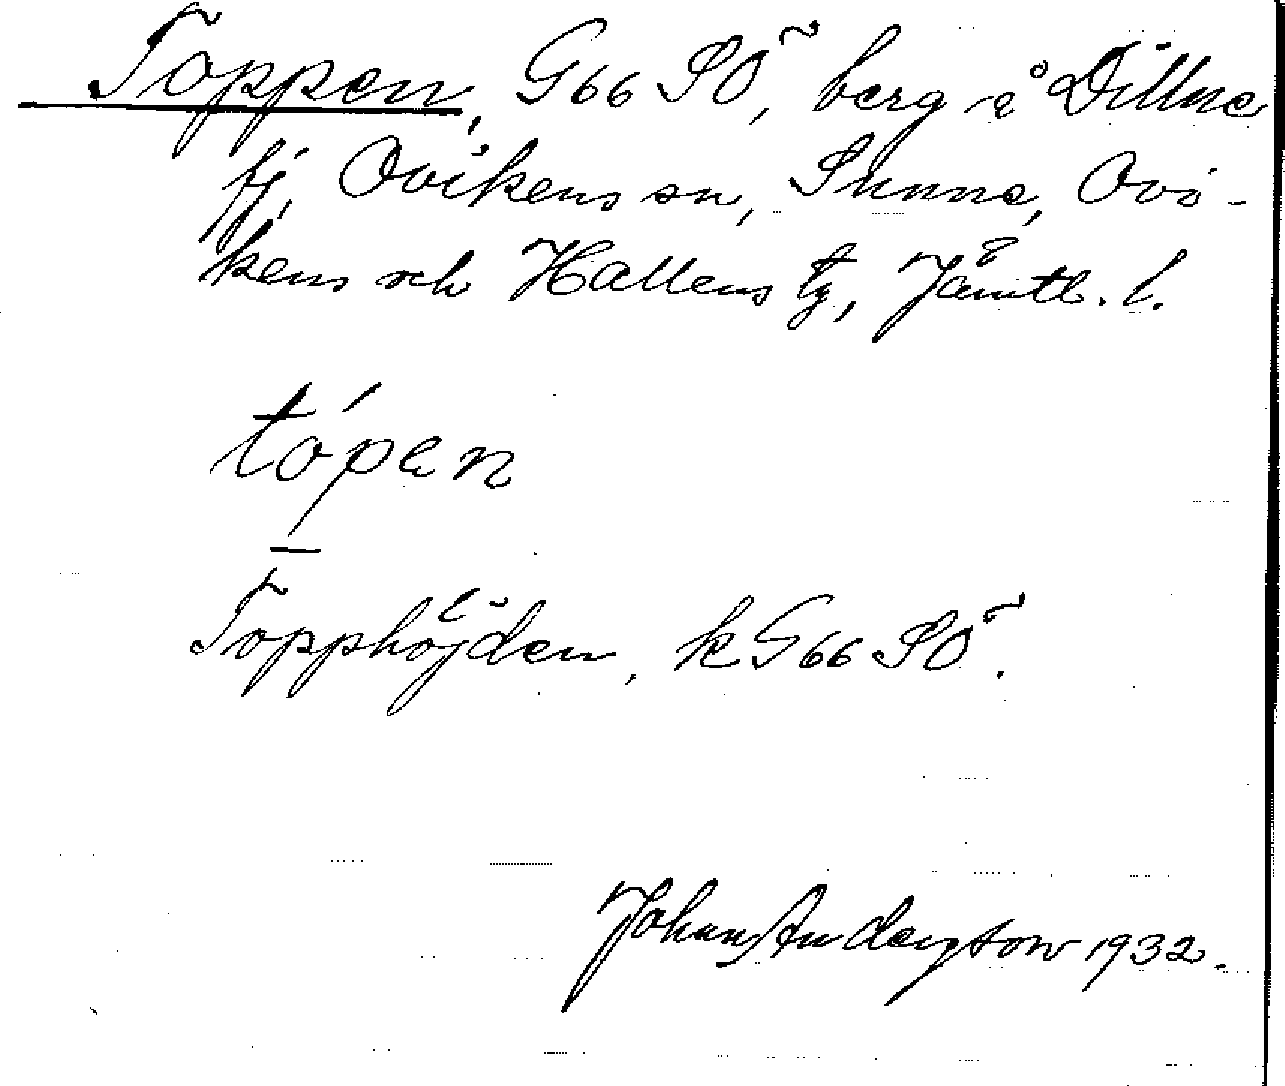 Toppen, G66 SÖ, berg i Dillne
fj, Ovikens sn, Sunne, Ovi-
kens och Hallens tg, Jämtl. l.
tópen
—
Topphöjden, k G66 SÖ.
Johan Andersson 1932.